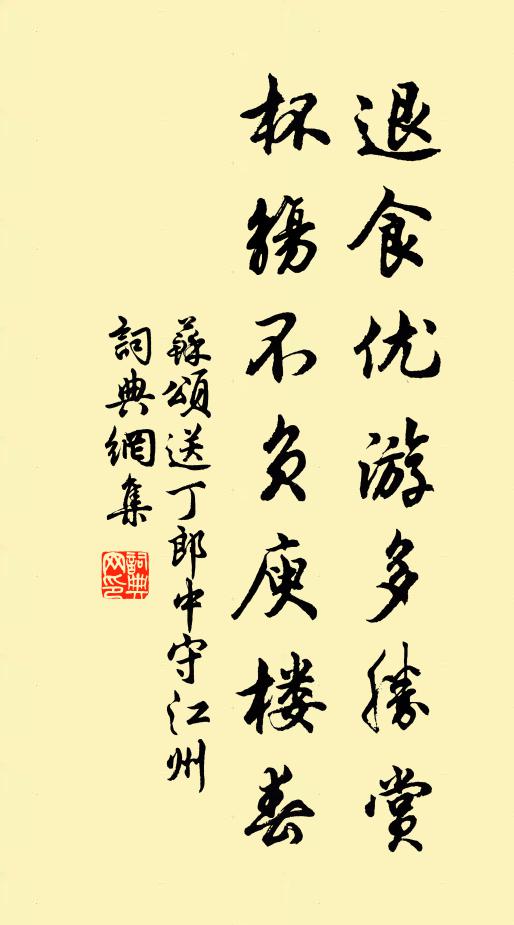 退食优游多勝賞
杯觴不负庾楼春
蘇頌送丁郎中守江州
詞典網集
詞典网印